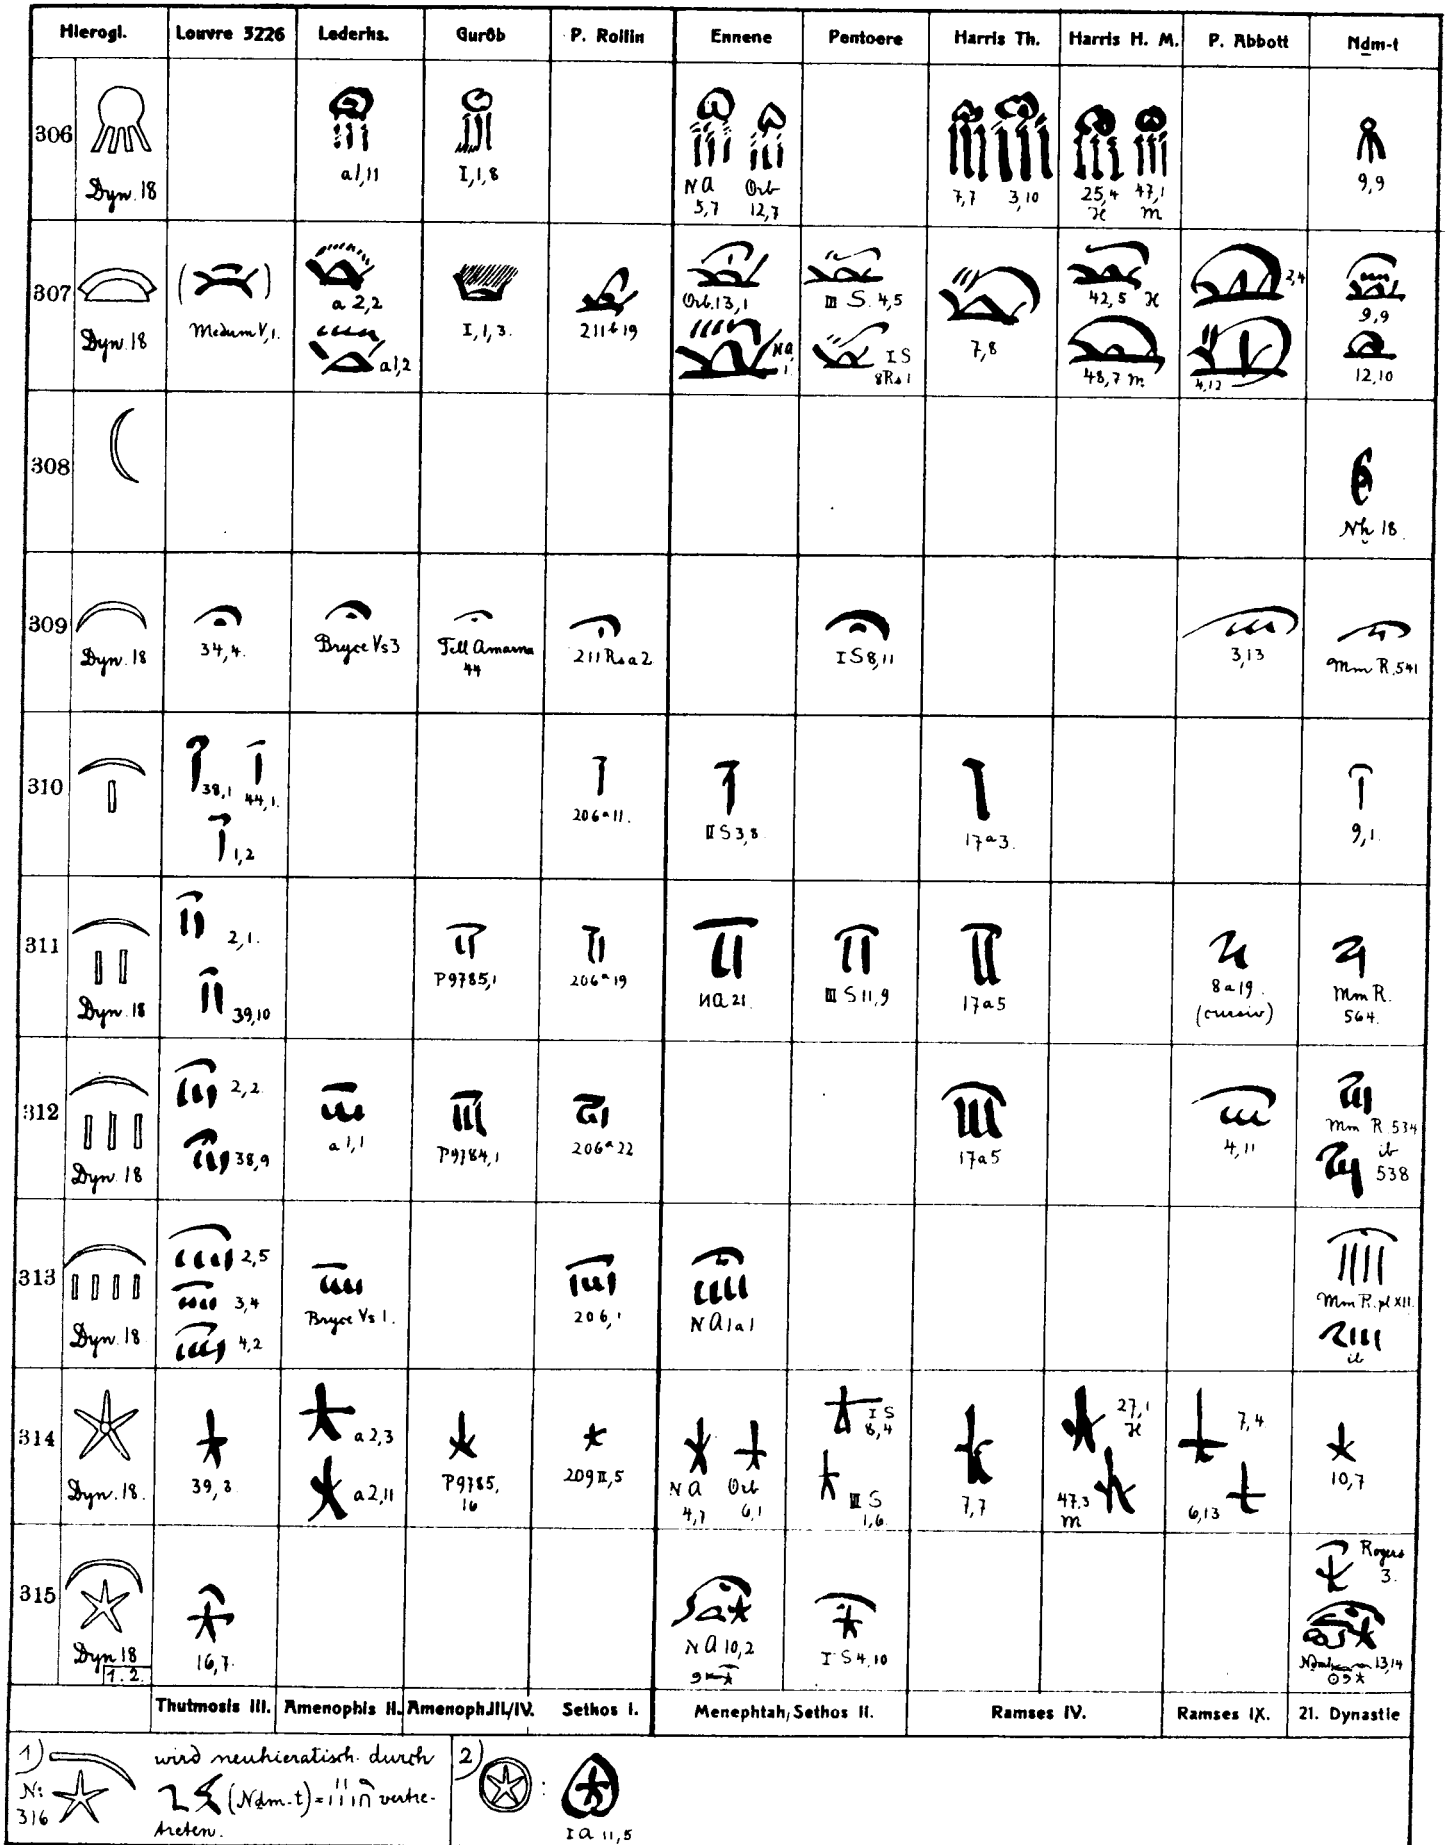 Hierogl. Louvre 3226 Lederhs. Gurôb P. Rollin Ennene Pentoere Harris Th. Harris H. M. P. Abbott Nḏm-t
306
Dyn. 18
a1,11
I,1,8
NA 5,7
Orb 12,7
7,7 3,10
25,4 H
47,1 M
9,9
307
Dyn. 18
Medum V,1.
a 2,2
a1,2
I,1,3.
211b19
Orb.13,1
NA 1
III S. 4,5
I S 8Rs1
7,8
42,5 H
48,7 M.
2,4
4,12
9,9
12,10
308
Nḫ 18.
309
Dyn. 18
34,4.
Bryce Vs3
Tell Amarna 44
211Rsa2
IS8,11
3,13
Mm R.541
310
38,1 44,1.
1,2
206a11.
II S3,8.
17a3.
9,1.
311
Dyn. 18
2,1.
39,10
P9785,1
206a19
NA 21.
III S11,9
17a5
8a19.
(cursiv)
Mm R.
564.
312
Dyn. 18
2,2
38,9
a1,1
P9784,1
206a22
17a5
4,11
Mm R 534
ib
538
313
Dyn. 18
2,5
3,4
4,2
Bryce Vs 1.
206,1
NA1a1
Mm R. pl XII.
ib
314
Dyn. 18.
39,3.
a2,3
a2,11
P9785,
16
209II,5
NA 4,7
Orb 6,1
I S
8,4
III S
1,6.
7,7
27,1
H
47,3
M
7,4
6,13
10,7
315
Dyn 18
1. 2.
16,7.
NA 10,2
I S 4,10
Rogers
3.
13,14
Thutmosis III. Amenophis II. Amenoph.III./IV. Sethos I. Menephtah, Sethos II. Ramses IV. Ramses IX. 21. Dynastie
1) wird neuhieratisch durch
N:
316
(Nḏm-t) = vertre-
treten.
2) :
IA 11,5